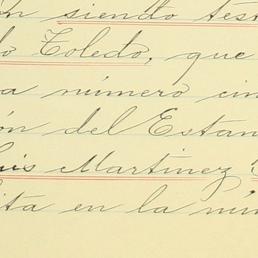 ón siendo test
do Toledo, que
a número cin
ón del Estan
uis Martinez
ita en la nú